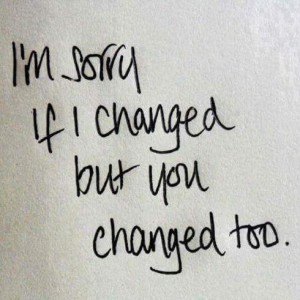 I'm sorry
if I changed
but you
changed too.